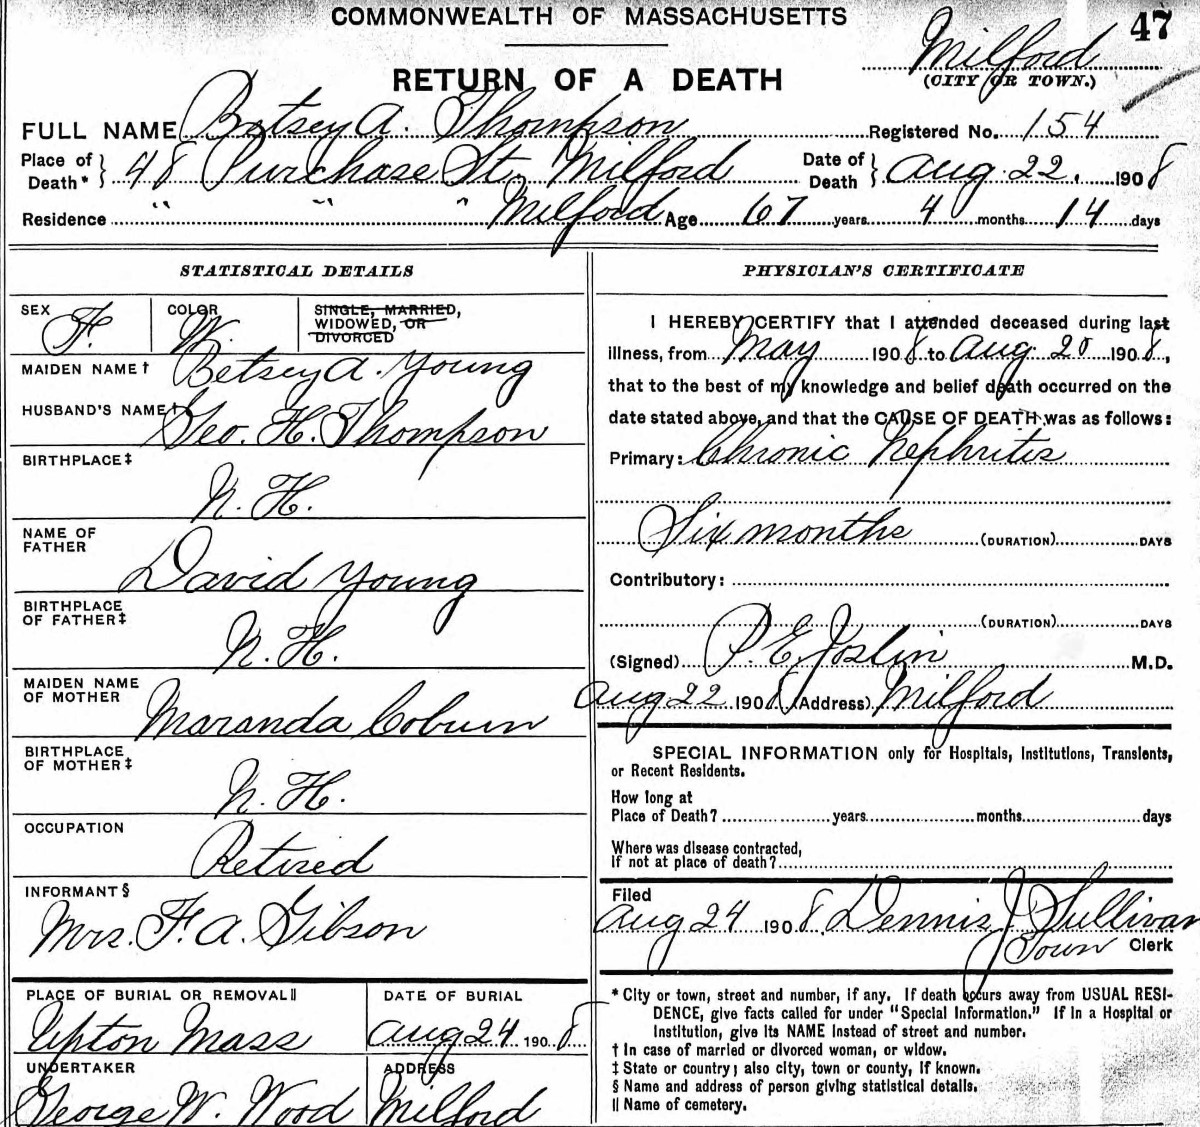 COMMONWEALTH OF MASSACHUSETTS
47
RETURN OF A DEATH
Milford
(CITY OR TOWN.)
FULL NAME Betsey A. Thompson Registered No. 154
Place of Death* } 48 Purchase St. Milford Date of Death } Aug. 22, 1908
Residence " " " Milford Age 67 years 4 months 14 days
STATISTICAL DETAILS
SEX F. COLOR W. SINGLE, MARRIED, WIDOWED, OR DIVORCED
MAIDEN NAME† Betsey A. Young
HUSBAND'S NAME† Geo. H. Thompson
BIRTHPLACE‡
N. H.
NAME OF FATHER
David Young
BIRTHPLACE OF FATHER‡
N. H.
MAIDEN NAME OF MOTHER
Maranda Coburn
BIRTHPLACE OF MOTHER‡
N. H.
OCCUPATION
Retired
INFORMANT§
Mrs. F. A. Gibson
PLACE OF BURIAL OR REMOVAL‖
Upton Mass
DATE OF BURIAL
Aug 24 1908
UNDERTAKER
George W. Wood
ADDRESS
Milford
PHYSICIAN'S CERTIFICATE
I HEREBY CERTIFY that I attended deceased during last
illness, from May 1908 to Aug 20 1908,
that to the best of my knowledge and belief death occurred on the
date stated above, and that the CAUSE OF DEATH was as follows:
Primary: Chronic Nephritis
Six months (DURATION) DAYS
Contributory:
(DURATION) DAYS
(Signed) P. E. Joslin M.D.
Aug 22 1908 (Address) Milford
SPECIAL INFORMATION only for Hospitals, Institutions, Transients,
or Recent Residents.
How long at
Place of Death? years months days
Where was disease contracted,
if not at place of death?
Filed
Aug 24 1908 Dennis J. Sullivan
Town Clerk
* City or town, street and number, if any. If death occurs away from USUAL RESI-
DENCE, give facts called for under "Special Information." If in a Hospital or
Institution, give its NAME instead of street and number.
† In case of married or divorced woman, or widow.
‡ State or country; also city, town or county, if known.
§ Name and address of person giving statistical details.
‖ Name of cemetery.